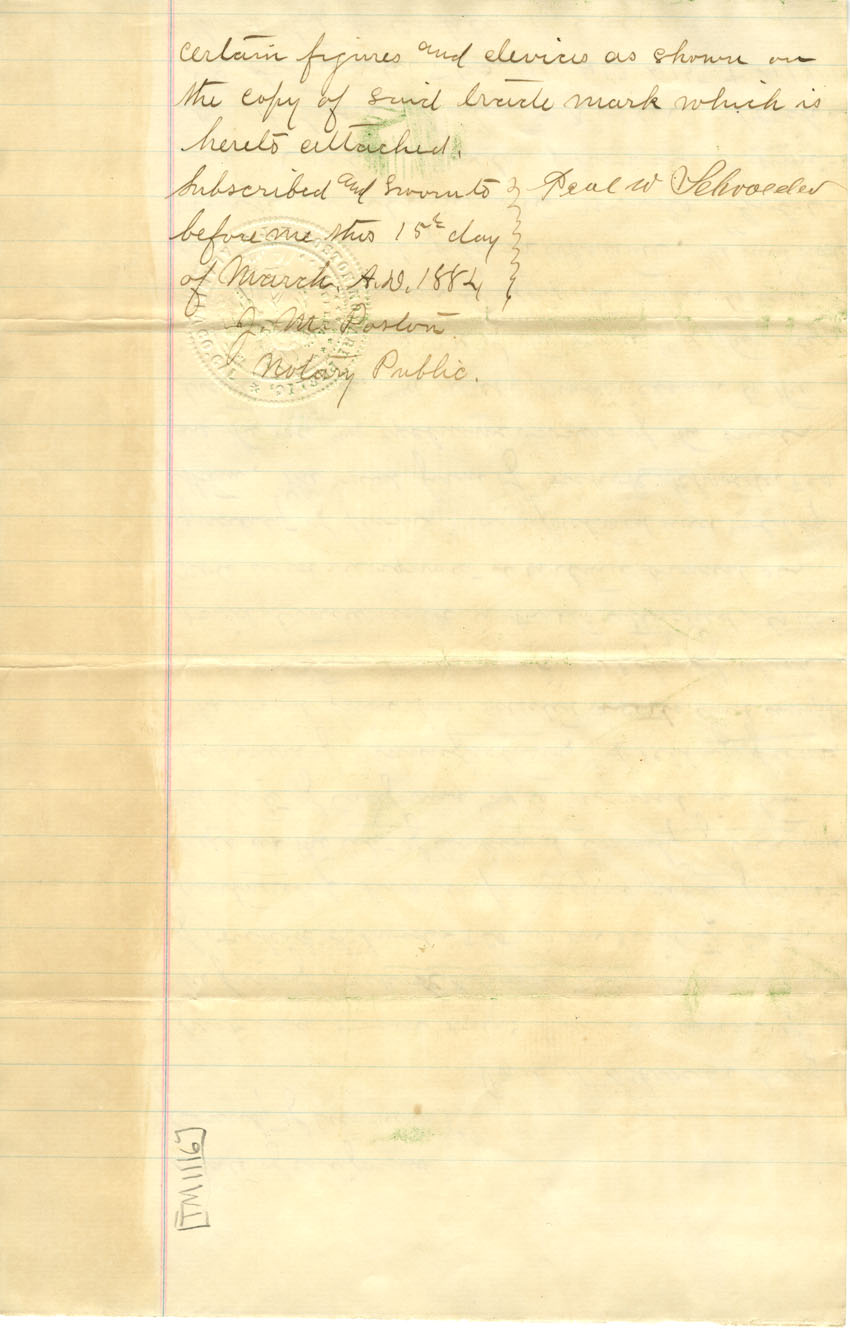 certain figures and devices as shown on
the copy of said trade mark which is
hereto attached.
Subscribed and sworn to } Paul W Schroeder
before me this 15th day
of March. A.D. 1884
J. M. Poston
Notary Public.
[TM1116]